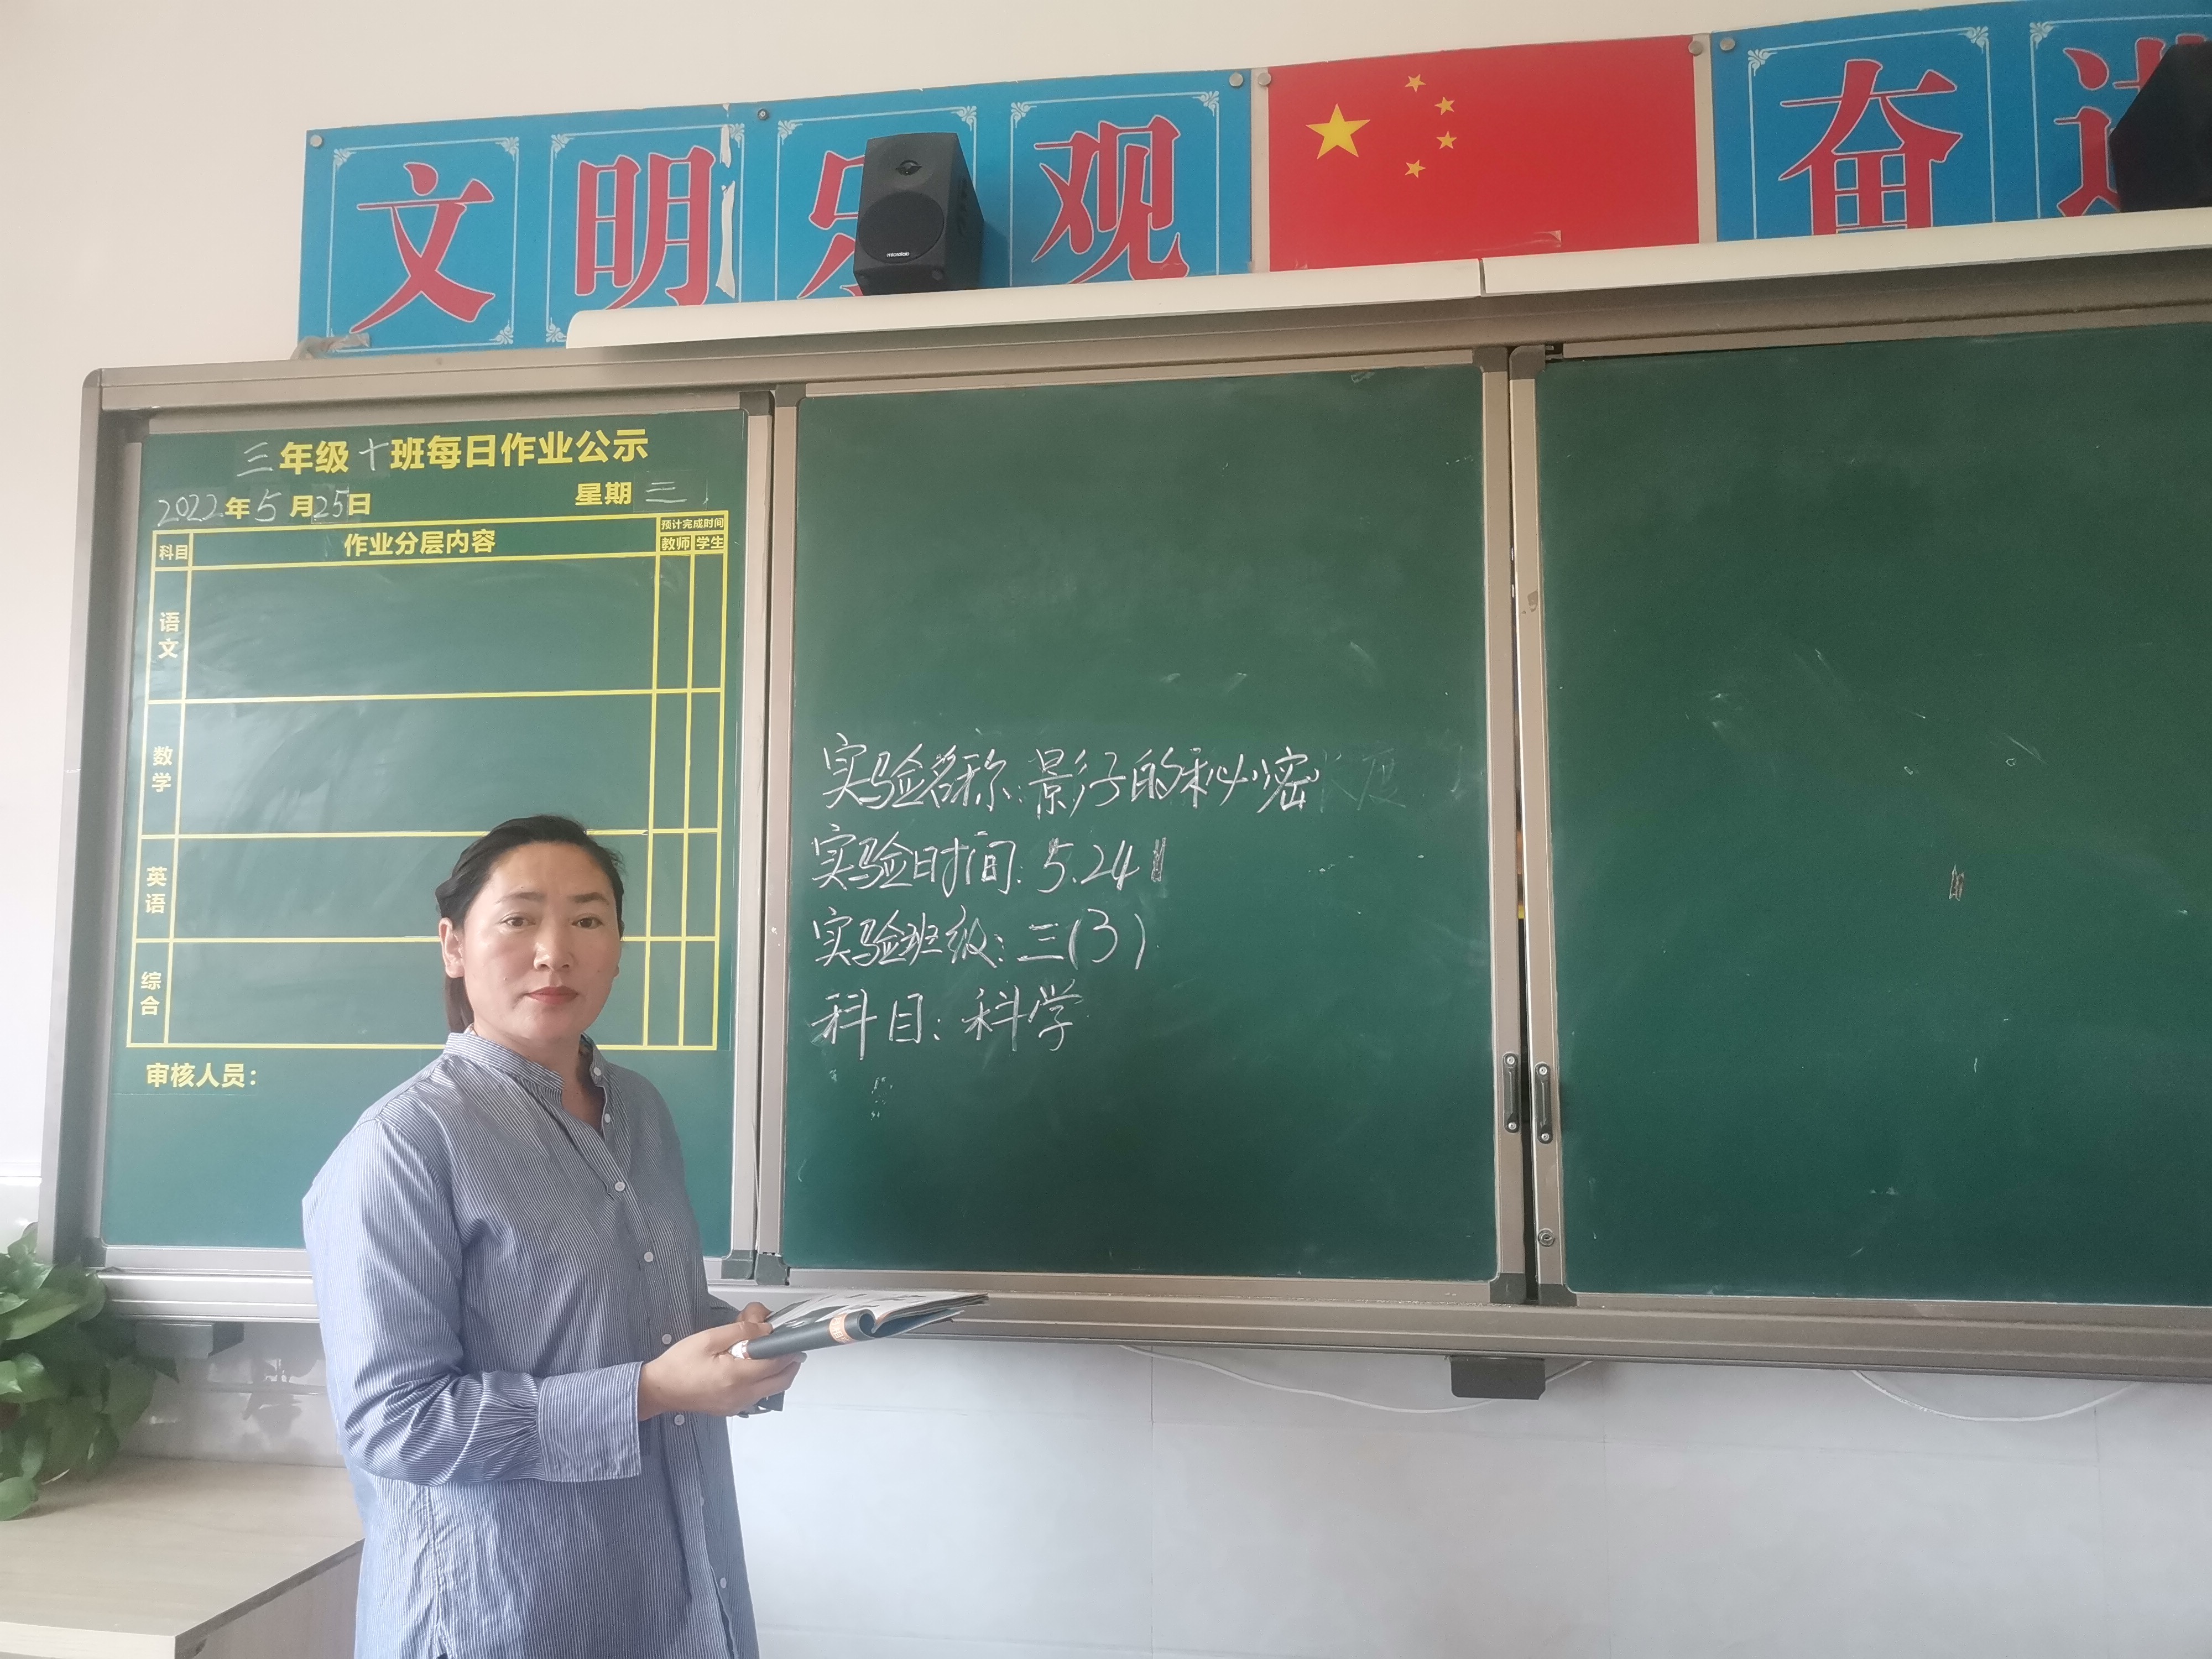 文明乐观
奋进
microlab
三年级十班每日作业公示
2022年5月25日 星期三
科目 作业分层内容 预计完成时间
教师 学生
语文
数学
英语
综合
审核人员：
实验名称：影子的秘密
实验时间：5.24
实验班级：三(3)
科目：科学